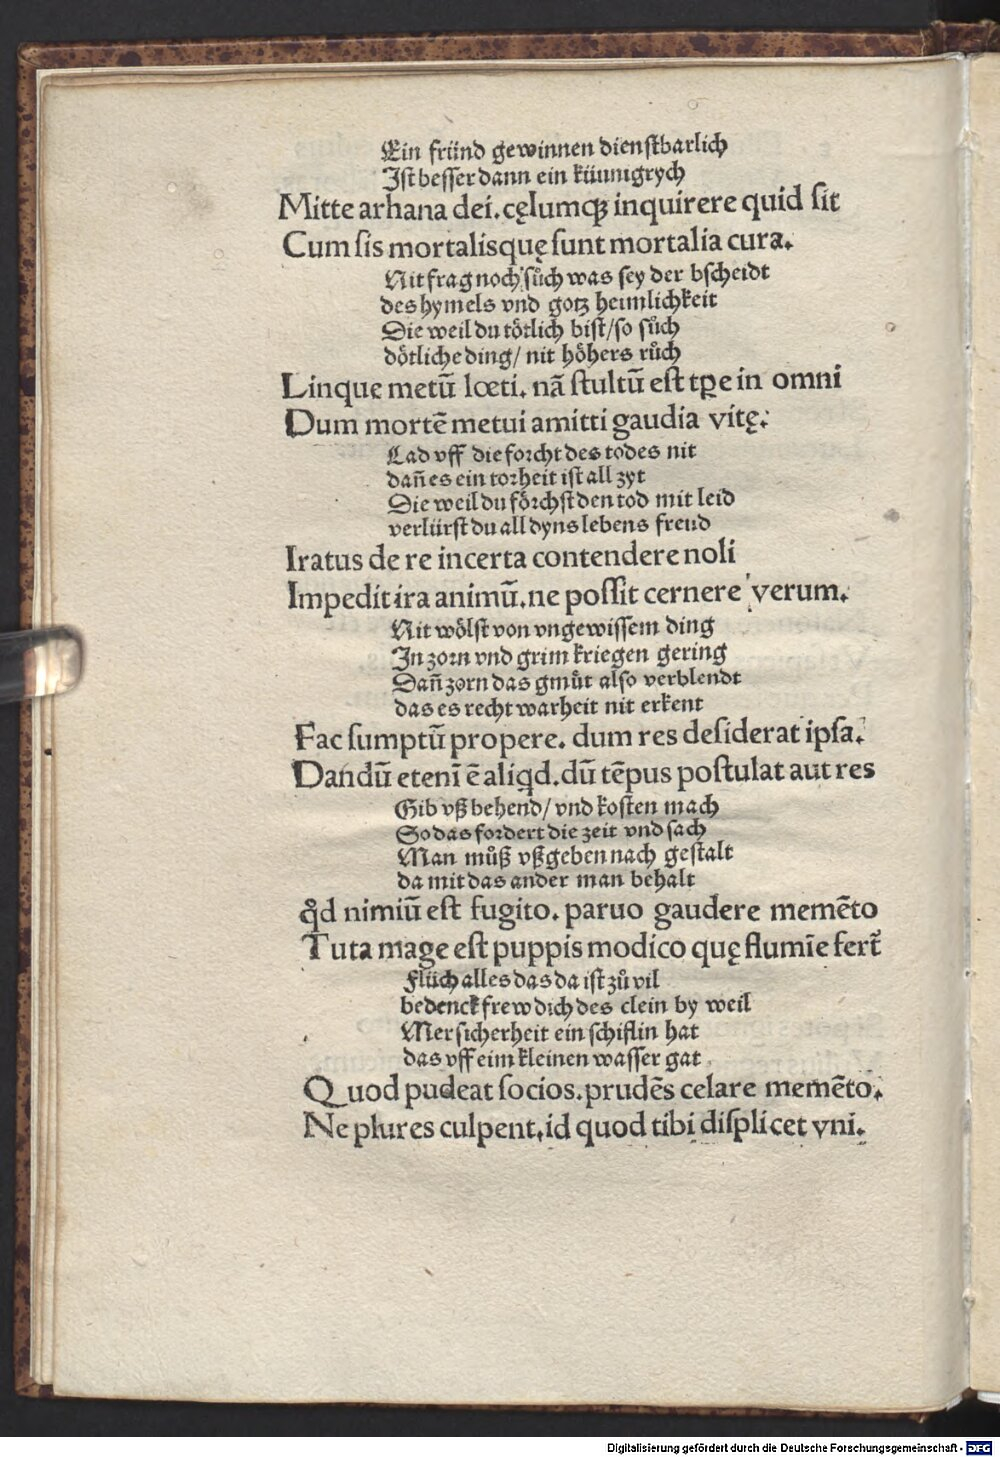 Ein fründ gewinnen dienstbarlich
Ist besser dann ein küunigrych
Mitte arhana dei. cęlumqꝫ inquirere quid sit
Cum sis mortalis quę sunt mortalia cura.
Nit frag noch sůch was sey der bscheidt
des hymels vnd gotz heimlichkeit
Die weil du tötlich bist/so sůch
dötliche ding/ nit höhers růch
Linque metū lœti. nā stultū est tꝑe in omni
Dum mortē metui amitti gaudia vitę.
Lad vff die forcht des todes nit
dañ es ein torheit ist all zyt
Die weil du förchst den tod mit leid
verlürst du all dyns lebens freud
Iratus de re incerta contendere noli
Impedit ira animū. ne possit cernere verum.
Nit wölst von vngewissem ding
In zorn vnd grim kriegen gering
Dañ zorn das gmüt also verblendt
das es recht warheit nit erkent
Fac sumptū propere. dum res desiderat ipsa.
Dandū etenī ē aliqd. dū tēpus postulat aut res
Gib vß behend/ vnd kosten mach
So das fordert die zeit vnd sach
Man můß vßgeben nach gestalt
da mit das ander man behalt
qd nimiū est fugito. paruo gaudere memēto
Tuta mage est puppis modico quę flumīe fert̄
Flüch alles das da ist zů vil
bedenck frew dich des clein by weil
Mer sicherheit ein schiflin hat
das vff eim kleinen wasser gat
Quod pudeat socios. prudēs celare memēto.
Ne plures culpent. id quod tibi displicet vni.
Digitalisierung gefördert durch die Deutsche Forschungsgemeinschaft - DFG